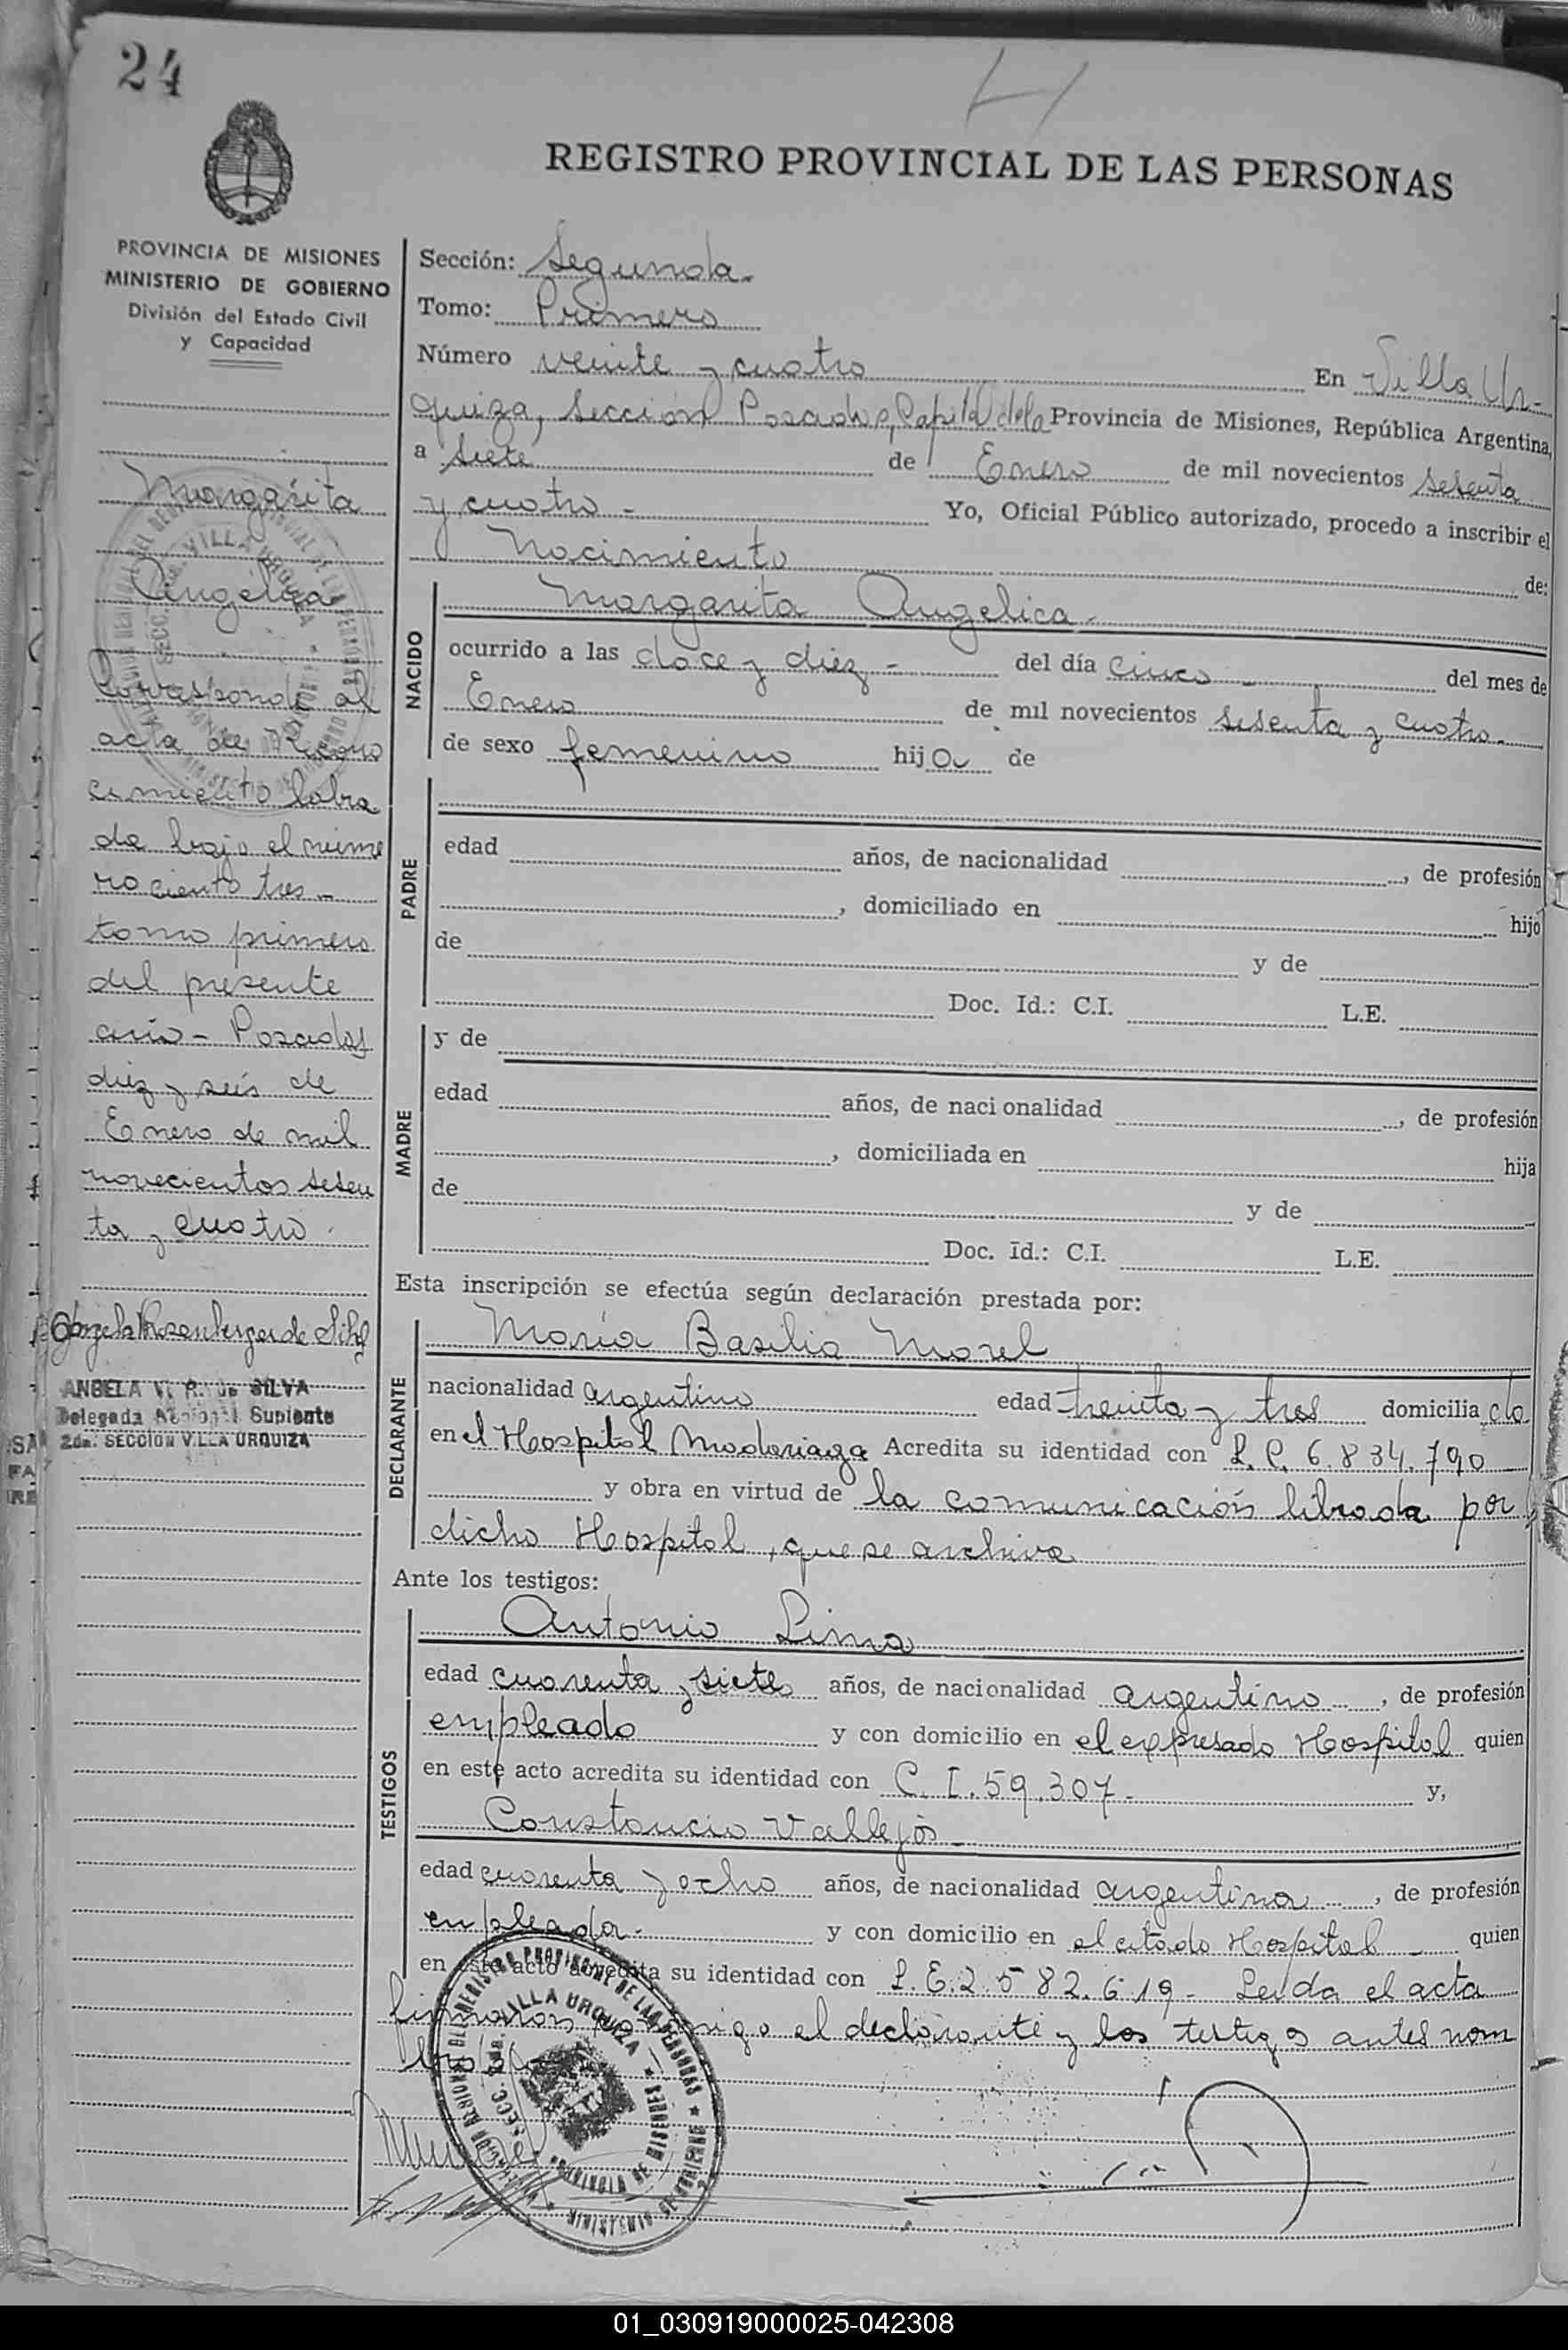 24
REGISTRO PROVINCIAL DE LAS PERSONAS
PROVINCIA DE MISIONES
MINISTERIO DE GOBIERNO
División del Estado Civil
y Capacidad
Margarita
Angélica
Corresponde al
acta de Recono
cimiento labra
da bajo el núme
ro ciento tres -
tomo primero
del presente
año - Posadas
diez y seis de
Enero de mil
novecientos sesen
ta y cuatro.
ANGELA V. R. de SILVA
Delegada Suplente
2da. SECCION VILLA URQUIZA
Sección: Segunda.
Tomo: Primero
Número veinte y cuatro En Villa Ur-
quiza, Sección Posadas, Capital de la Provincia de Misiones, República Argentina,
a siete de Enero de mil novecientos sesenta
y cuatro - Yo, Oficial Público autorizado, procedo a inscribir el
Nacimiento de:
NACIDO
Margarita Angelica.
ocurrido a las doce y diez - del día cinco - del mes de
Enero de mil novecientos sesenta y cuatro.
de sexo femenino hija de
PADRE
edad años, de nacionalidad , de profesión
, domiciliado en hijo
de y de
Doc. Id.: C.I. L.E.
MADRE
y de
edad años, de naci onalidad , de profesión
, domiciliada en hija
de y de
Doc. Id.: C.I. L.E.
Esta inscripción se efectúa según declaración prestada por:
DECLARANTE
María Basilia Morel
nacionalidad argentina edad treinta y tres domicilia do
en el Hospital Madariaga Acredita su identidad con L.C. 6.834.790
y obra en virtud de la comunicación librada por
dicho Hospital, que se archiva
Ante los testigos:
TESTIGOS
Antonio Lima
edad cuarenta y siete años, de nacionalidad argentino , de profesión
empleado y con domicilio en el expresado Hospital quien
en este acto acredita su identidad con C.I. 59.307 - y,
Constancio Vallejos -
edad cuarenta y ocho años, de nacionalidad argentina , de profesión
empleada - y con domicilio en el citado Hospital - quien
en este acto acredita su identidad con L.E. 2.582.619 - Leida el acta
firmaron conmigo el declarante y los testigos antes nom
brados
VILLA URQUIZA
PROVINCIA DE MISIONES
01_030919000025-042308